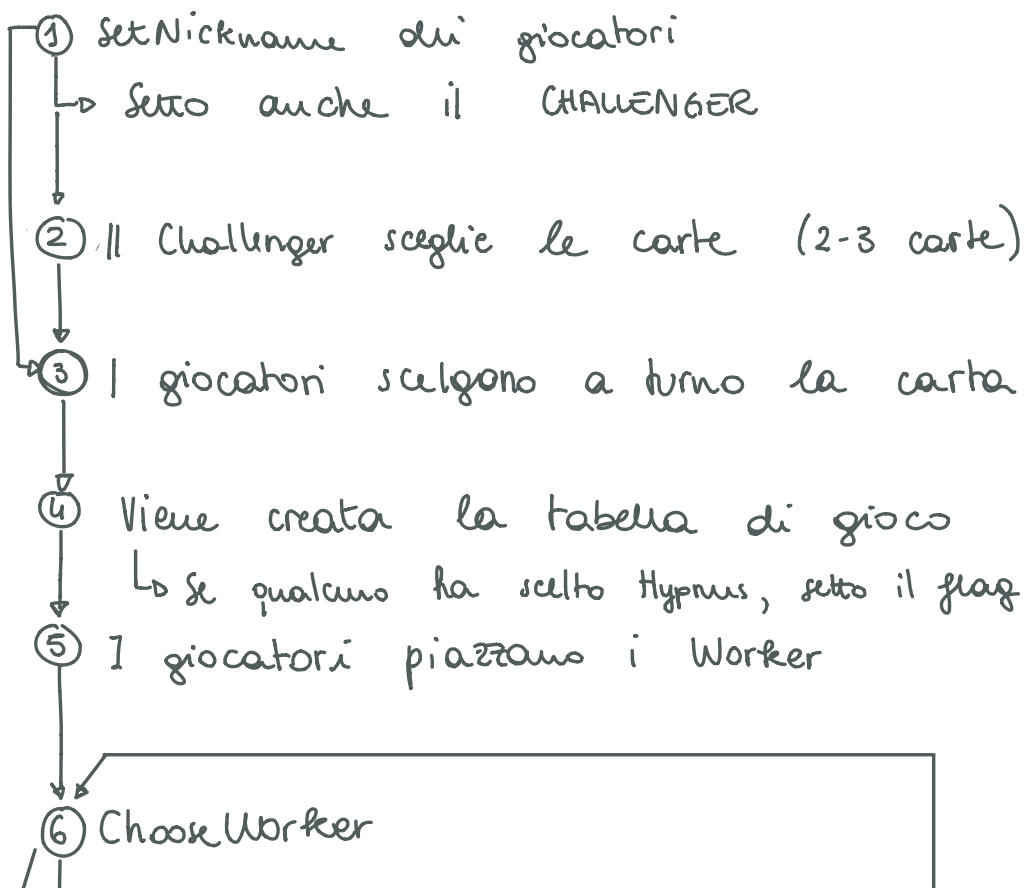 1 SetNickname dei giocatori
Setto anche il CHALLENGER
2 Il Challenger sceglie le carte (2-3 carte)
3 I giocatori scelgono a turno la carta
4 Viene creata la tabella di gioco
Se qualcuno ha scelto Hypnus, setto il flag
5 I giocatori piazzano i Worker
6 ChooseWorker